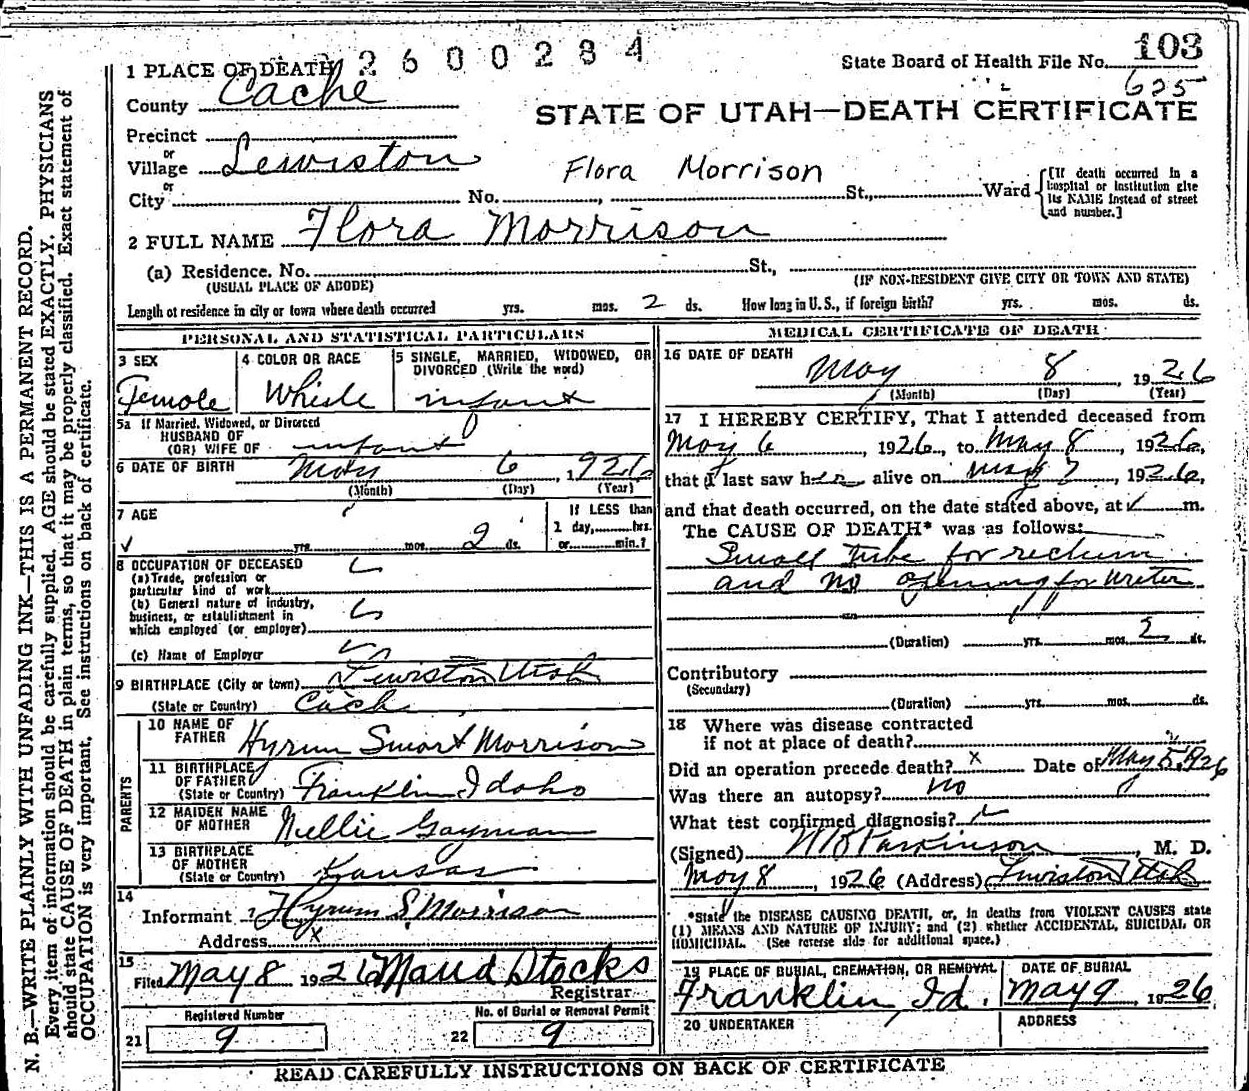 2600284
State Board of Health File No. 103
625
1 PLACE OF DEATH
County Cache
STATE OF UTAH—DEATH CERTIFICATE
Precinct
or
Village Lewiston
Flora Morrison
or
City No. , St., Ward
[If death occurred in a hospital or institution give its NAME instead of street and number.]
2 FULL NAME Flora Morrison
(a) Residence. No. St.,
(USUAL PLACE OF ABODE) (IF NON-RESIDENT GIVE CITY OR TOWN AND STATE)
Length of residence in city or town where death occurred yrs. mos. 2 ds. How long in U. S., if foreign birth? yrs. mos. ds.
PERSONAL AND STATISTICAL PARTICULARS
3 SEX
Female
4 COLOR OR RACE
5 SINGLE, MARRIED, WIDOWED, OR DIVORCED (Write the word)
infant
5a If Married, Widowed, or Divorced
HUSBAND OF
(OR) WIFE OF infant
6 DATE OF BIRTH May 6, 1926
(Month) (Day) (Year)
7 AGE
yrs. mos. 2 ds.
If LESS than
1 day, hrs.
or min.?
8 OCCUPATION OF DECEASED
(a) Trade, profession or
particular kind of work
(b) General nature of industry,
business, or establishment in
which employed (or employer)
(c) Name of Employer
9 BIRTHPLACE (City or town) Lewiston Utah
(State or Country) Cach
PARENTS
10 NAME OF
FATHER Hyrum Smart Morrison
11 BIRTHPLACE
OF FATHER
(State or Country) Franklin, Idaho
12 MAIDEN NAME
OF MOTHER Nellie Gayman
13 BIRTHPLACE
OF MOTHER
(State or Country) Kansas
14
Informant Hyrum S. Morrison
Address x
15
Filed May 8 1926 Maud Stocks
Registrar
Registered Number
21 9
No. of Burial or Removal Permit
22 9
MEDICAL CERTIFICATE OF DEATH
16 DATE OF DEATH
May 8, 1926
(Month) (Day) (Year)
17 I HEREBY CERTIFY, That I attended deceased from
May 6, 1926, to May 8, 1926,
that I last saw her alive on May 7, 1926,
and that death occurred, on the date stated above, at m.
The CAUSE OF DEATH* was as follows:
Small tube for rectum
and no opening for ureter
(Duration) yrs. mos. 2 ds.
Contributory
(Secondary)
(Duration) yrs. mos. ds.
18 Where was disease contracted
if not at place of death?
Did an operation precede death? x Date of May 1926
Was there an autopsy? no
What test confirmed diagnosis?
(Signed) Parkinson, M. D.
May 8, 1926 (Address) Lewiston Utah
*State the DISEASE CAUSING DEATH, or, in deaths from VIOLENT CAUSES state
(1) MEANS AND NATURE OF INJURY; and (2) whether ACCIDENTAL, SUICIDAL OR
HOMICIDAL. (See reverse side for additional space.)
19 PLACE OF BURIAL, CREMATION, OR REMOVAL
Franklin, Id.
DATE OF BURIAL
May 9, 1926
20 UNDERTAKER
ADDRESS
READ CAREFULLY INSTRUCTIONS ON BACK OF CERTIFICATE
N. B.—WRITE PLAINLY WITH UNFADING INK—THIS IS A PERMANENT RECORD.
Every item of information should be carefully supplied. AGE should be stated EXACTLY. PHYSICIANS
should state CAUSE OF DEATH in plain terms, so that it may be properly classified. Exact statement of
OCCUPATION is very important. See instructions on back of certificate.